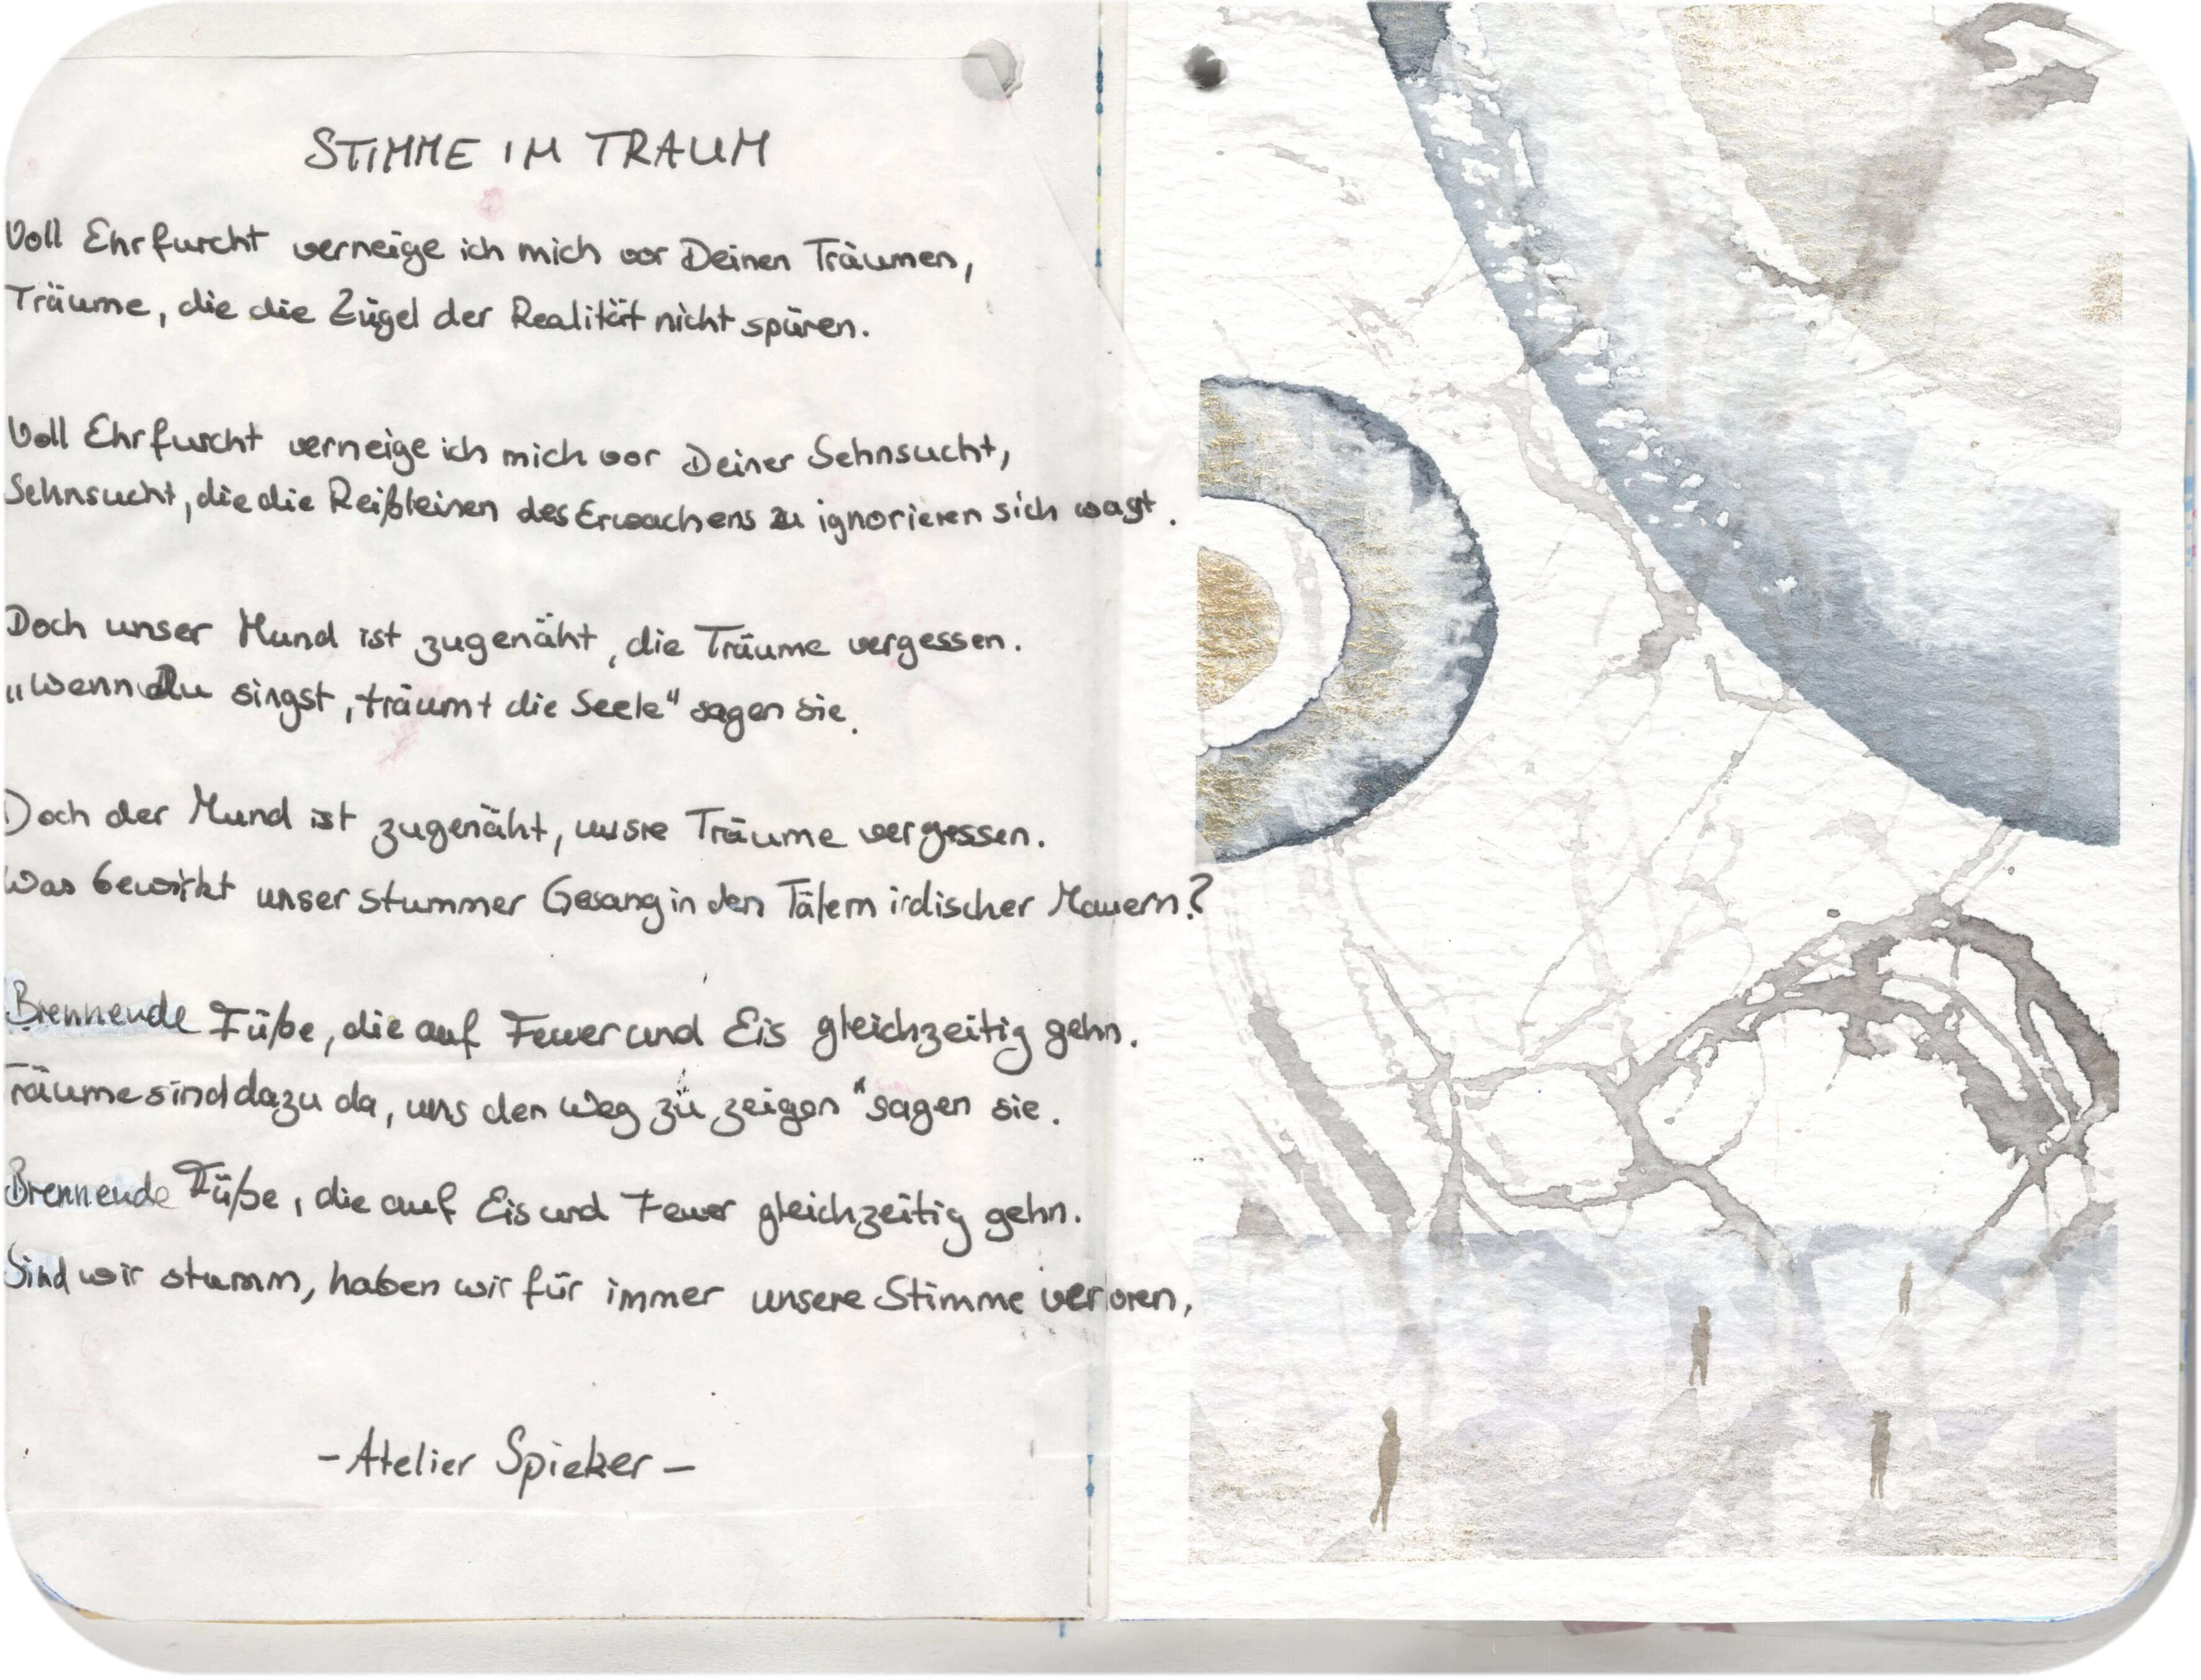 STIMME IM TRAUM
Voll Ehrfurcht verneige ich mich vor Deinen Träumen,
Träume, die die Zügel der Realität nicht spüren.
Voll Ehrfurcht verneige ich mich vor Deiner Sehnsucht,
Sehnsucht, die die Reißleinen des Erwachens zu ignorieren sich wagt.
Doch unser Mund ist zugenäht, die Träume vergessen.
„Wenn du singst, träumt die Seele“ sagen sie.
Doch der Mund ist zugenäht, unsre Träume vergessen.
Was bewirkt unser stummer Gesang in den Tälern irdischer Mauern?
Brennende Füße, die auf Feuer und Eis gleichzeitig gehn.
Träume sind dazu da, uns den Weg zu zeigen“ sagen sie.
Brennende Füße, die auf Eis und Feuer gleichzeitig gehn.
Sind wir stumm, haben wir für immer unsere Stimme verloren,
-Atelier Spieker-